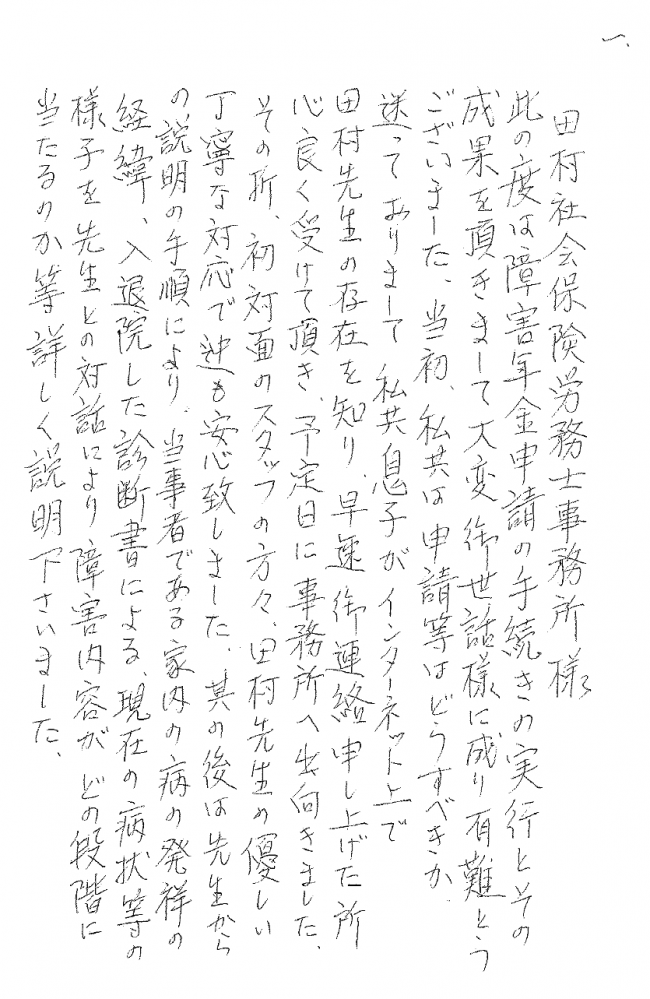 一、
田村社会保険労務士事務所様
此の度は障害年金申請の手続きの実行とその
成果を頂きまして大変御世話様に成り有難とう
ございました、当初、私共は申請等はどうすべきか
迷っておりまして 私共息子がインターネット上で
田村先生の存在を知り、早速御連絡申し上げた所
心良く受けて頂き、予定日に事務所へ出向きました、
その折、初対面のスタッフの方々、田村先生の優しい
丁寧な対応で迚も安心致しました、其の後は先生から
の、説明の手順により、当事者である家内の病の発祥の
経緯、入退院した診断書による、現在の病状等の
様子を先生との対話により障害内容が、どの段階に
当たるのか等詳しく説明下さいました、